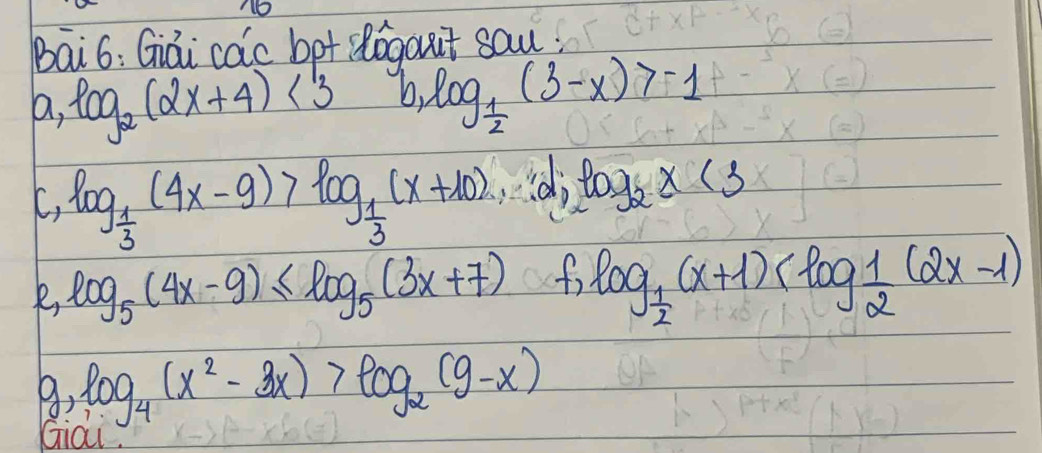 Bài 6: Giải các bpt lôgarit sau:
a, log₂(2x+4) < 3 b, log_{1/2}(3-x) > -1
c, log_{1/3}(4x-9) > log_{1/3}(x+10) d, log₂x < 3
e, log₅(4x-9) ≤ log₅(3x+7) f, log_{1/2}(x+1) < log_{1/2}(2x-1)
g, log₄(x²-3x) > log₂(9-x)
Giải.